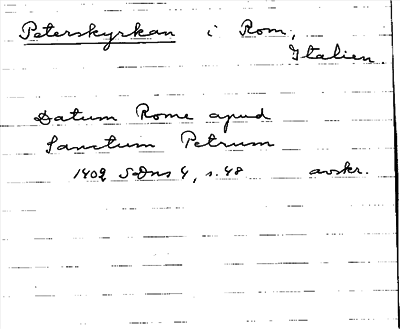 Peterskyrkan i Rom,
Italien
Datum Rome apud
Sanctum Petrum
1402 SDns 4, s. 48 avskr.